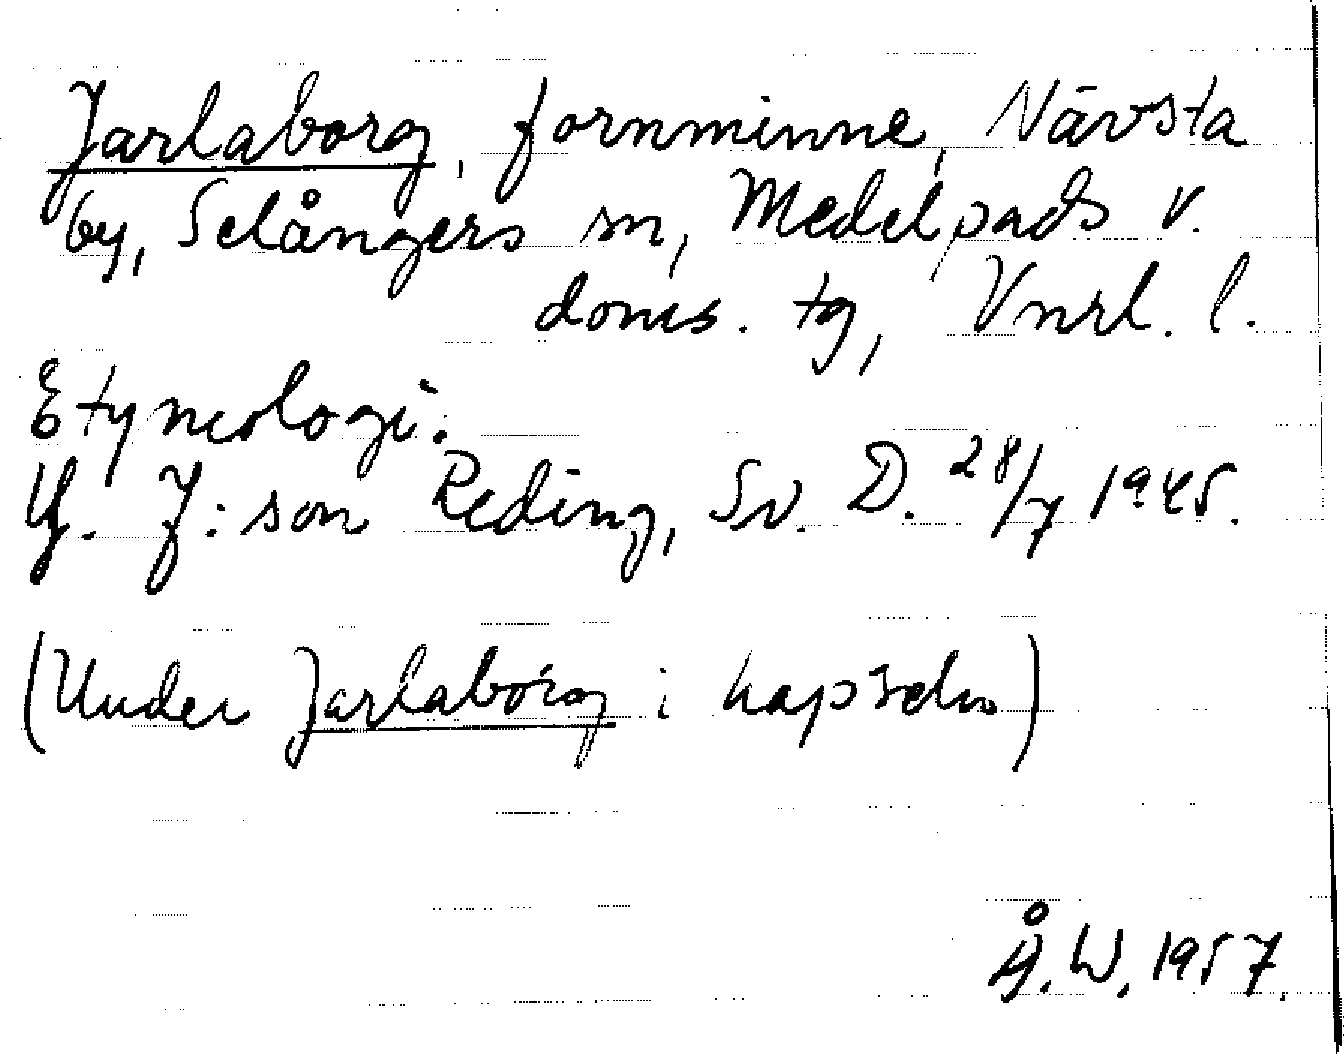 Jarlaborg, fornminne, Nävsta
by, Selångers sn, Medelpads v.
doms. tg, Vnrl. l.
Etymologi.
J:son Reding, Sv. D. 28/7 1945.
(Under Jarlaborg i kapseln)
Å. W. 1957.